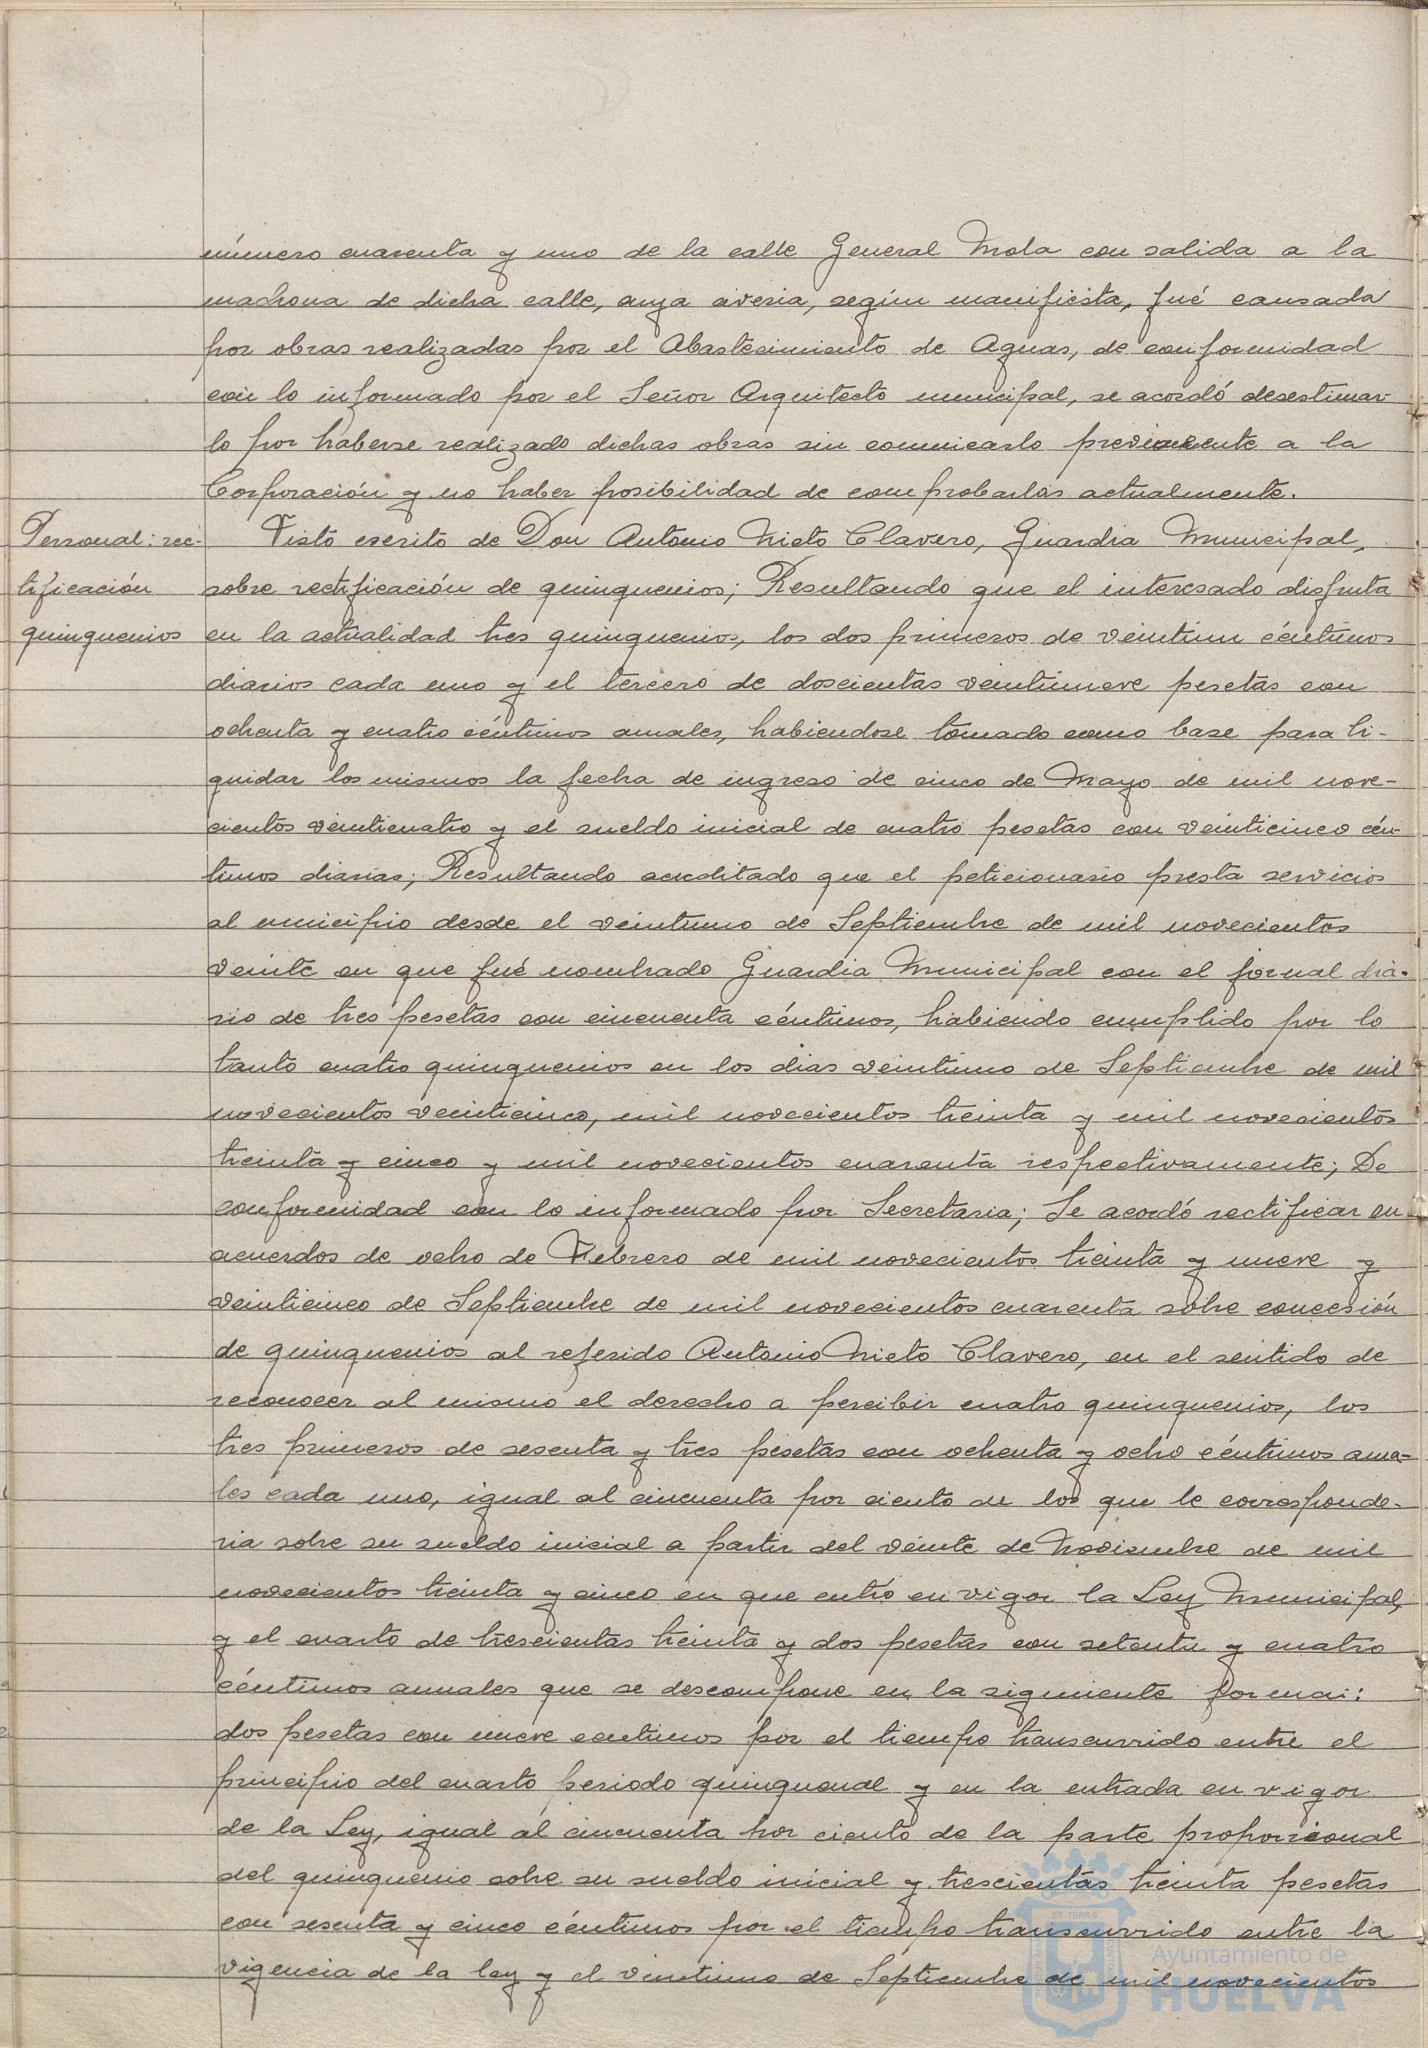 número cuarenta y uno de la calle General Mola con salida a la
madrona de dicha calle, cuya averia, según manifiesta, fué causada
por obras realizadas por el Abastecimiento de Aguas, de conformidad
con lo informado por el Señor Arquitecto municipal, se acordó desestimar
lo por haberse realizado dichas obras sin comunicarlo previamente a la
Corporación y no haber posibilidad de comprobarlas actualmente.
Personal: rec-
tificación
quinquenios
Visto escrito de Don Antonio Nieto Clavero, Guardia Municipal,
sobre rectificación de quinquenios; Resultando que el interesado disfruta
en la actualidad tres quinquenios, los dos primeros de veintiun céntimos
diarios cada uno y el tercero de doscientas veintinueve pesetas con
ochenta y cuatro céntimos anuales, habiendose tomado como base para li-
quidar los mismos la fecha de ingreso de cinco de Mayo de mil nove-
cientos veinticuatro y el sueldo inicial de cuatro pesetas con veinticinco cén-
timos diarias; Resultando acreditado que el peticionario presta servicios
al municipio desde el veintiuno de Septiembre de mil novecientos
veinte en que fué nombrado Guardia Municipal con el jornal dia-
rio de tres pesetas con cincuenta céntimos, habiendo cumplido por lo
tanto cuatro quinquenios en los dias veintiuno de Septiembre de mil
novecientos veinticinco, mil novecientos treinta y mil novecientos
treinta y cinco y mil novecientos cuarenta respectivamente; De
conformidad con lo informado por Secretaria; Se acordó rectificar en
acuerdos de ocho de Febrero de mil novecientos treinta y nueve y
veinticinco de Septiembre de mil novecientos cuarenta sobre concesión
de quinquenios al referido Antonio Nieto Clavero, en el sentido de
reconocer al mismo el derecho a percibir cuatro quinquenios, los
tres primeros de sesenta y tres pesetas con ochenta y ocho céntimos anua-
les cada uno, igual al cincuenta por ciento de los que le corresponde-
ria sobre su sueldo inicial a partir del veinte de Noviembre de mil
novecientos treinta y cinco en que entró en vigor la Ley Municipal,
y el cuarto de trescientas treinta y dos pesetas con setenta y cuatro
céntimos anuales que se descompone en la siguiente forma:
dos pesetas con nueve centimos por el tiempo transcurrido entre el
principio del cuarto periodo quinquenal y en la entrada en vigor
de la Ley, igual al cincuenta por ciento de la parte proporcional
del quinquenio sobre su sueldo inicial y trescientas treinta pesetas
con sesenta y cinco céntimos por el tiempo transcurrido entre la
vigencia de la ley y el veintiuno de Septiembre de mil novecientos
Ayuntamiento de
HUELVA